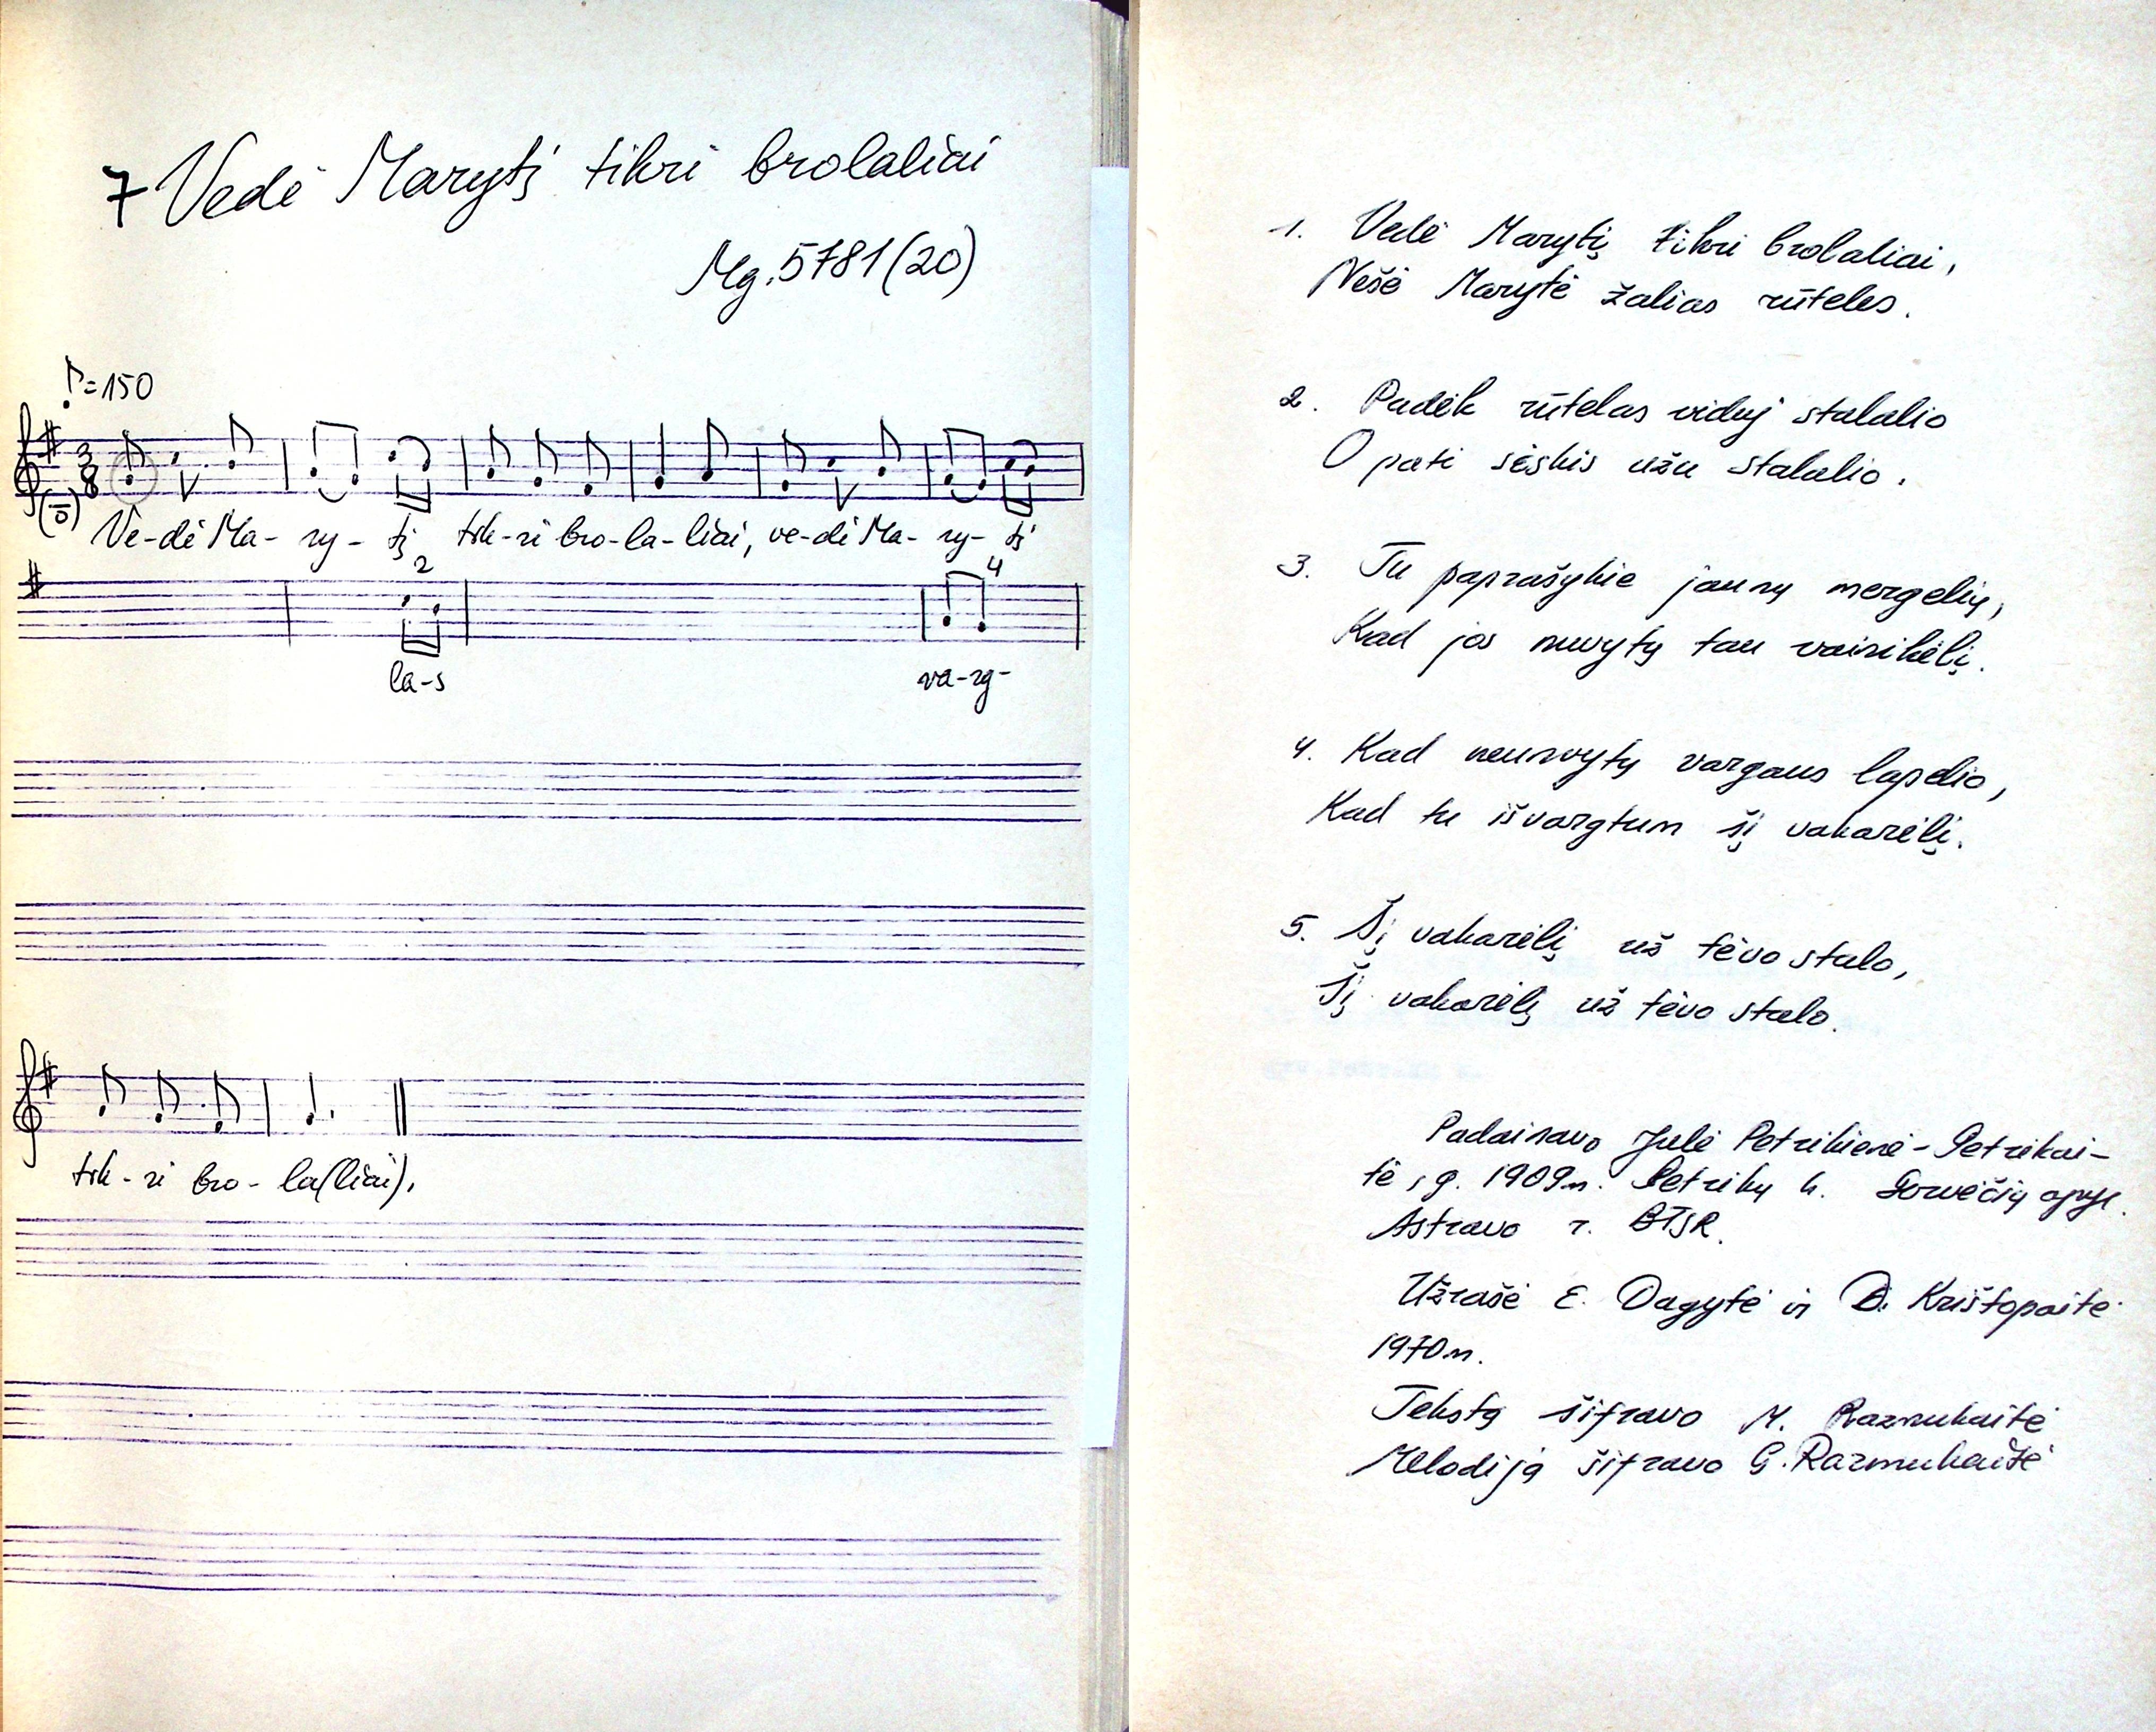 7 Vedė Marytį tikri brolaliai
Mg. 5781 (20)
♪=150
3
8
Ve-dė Ma- ry- tį tik-ri bro-la-liai, ve-dė Ma- ry- tį
2
4
la-s
va-rg-
tik-ri bro-la(liai).
1. Vedė Marytį tikri brolaliai,
Nešė Marytė žalias rūteles.
2. Padėk rūtelas viduj stalalio
O pati sėskis užu stalalio.
3. Tu paprašykie jaunų mergelių,
Kad jos nuvytų tau vainikėlį.
4. Kad nenuvytų vargaus lapelio,
Kad tu išvargtum šį vakarėlį.
5. Šį vakarėlį už tėvo stalo,
Šį vakarėlį už tėvo stalo.
Padainavo Julė Petrikienė-Petrikai-
tė, g. 1909 m. Petrikų k. Gervėčių apyl.
Astravo r. BTSR.
Užrašė E. Dagytė ir D. Krištopaitė
1970 m.
Tekstą šifravo M. Razmukaitė
Melodiją šifravo G. Razmukaitė